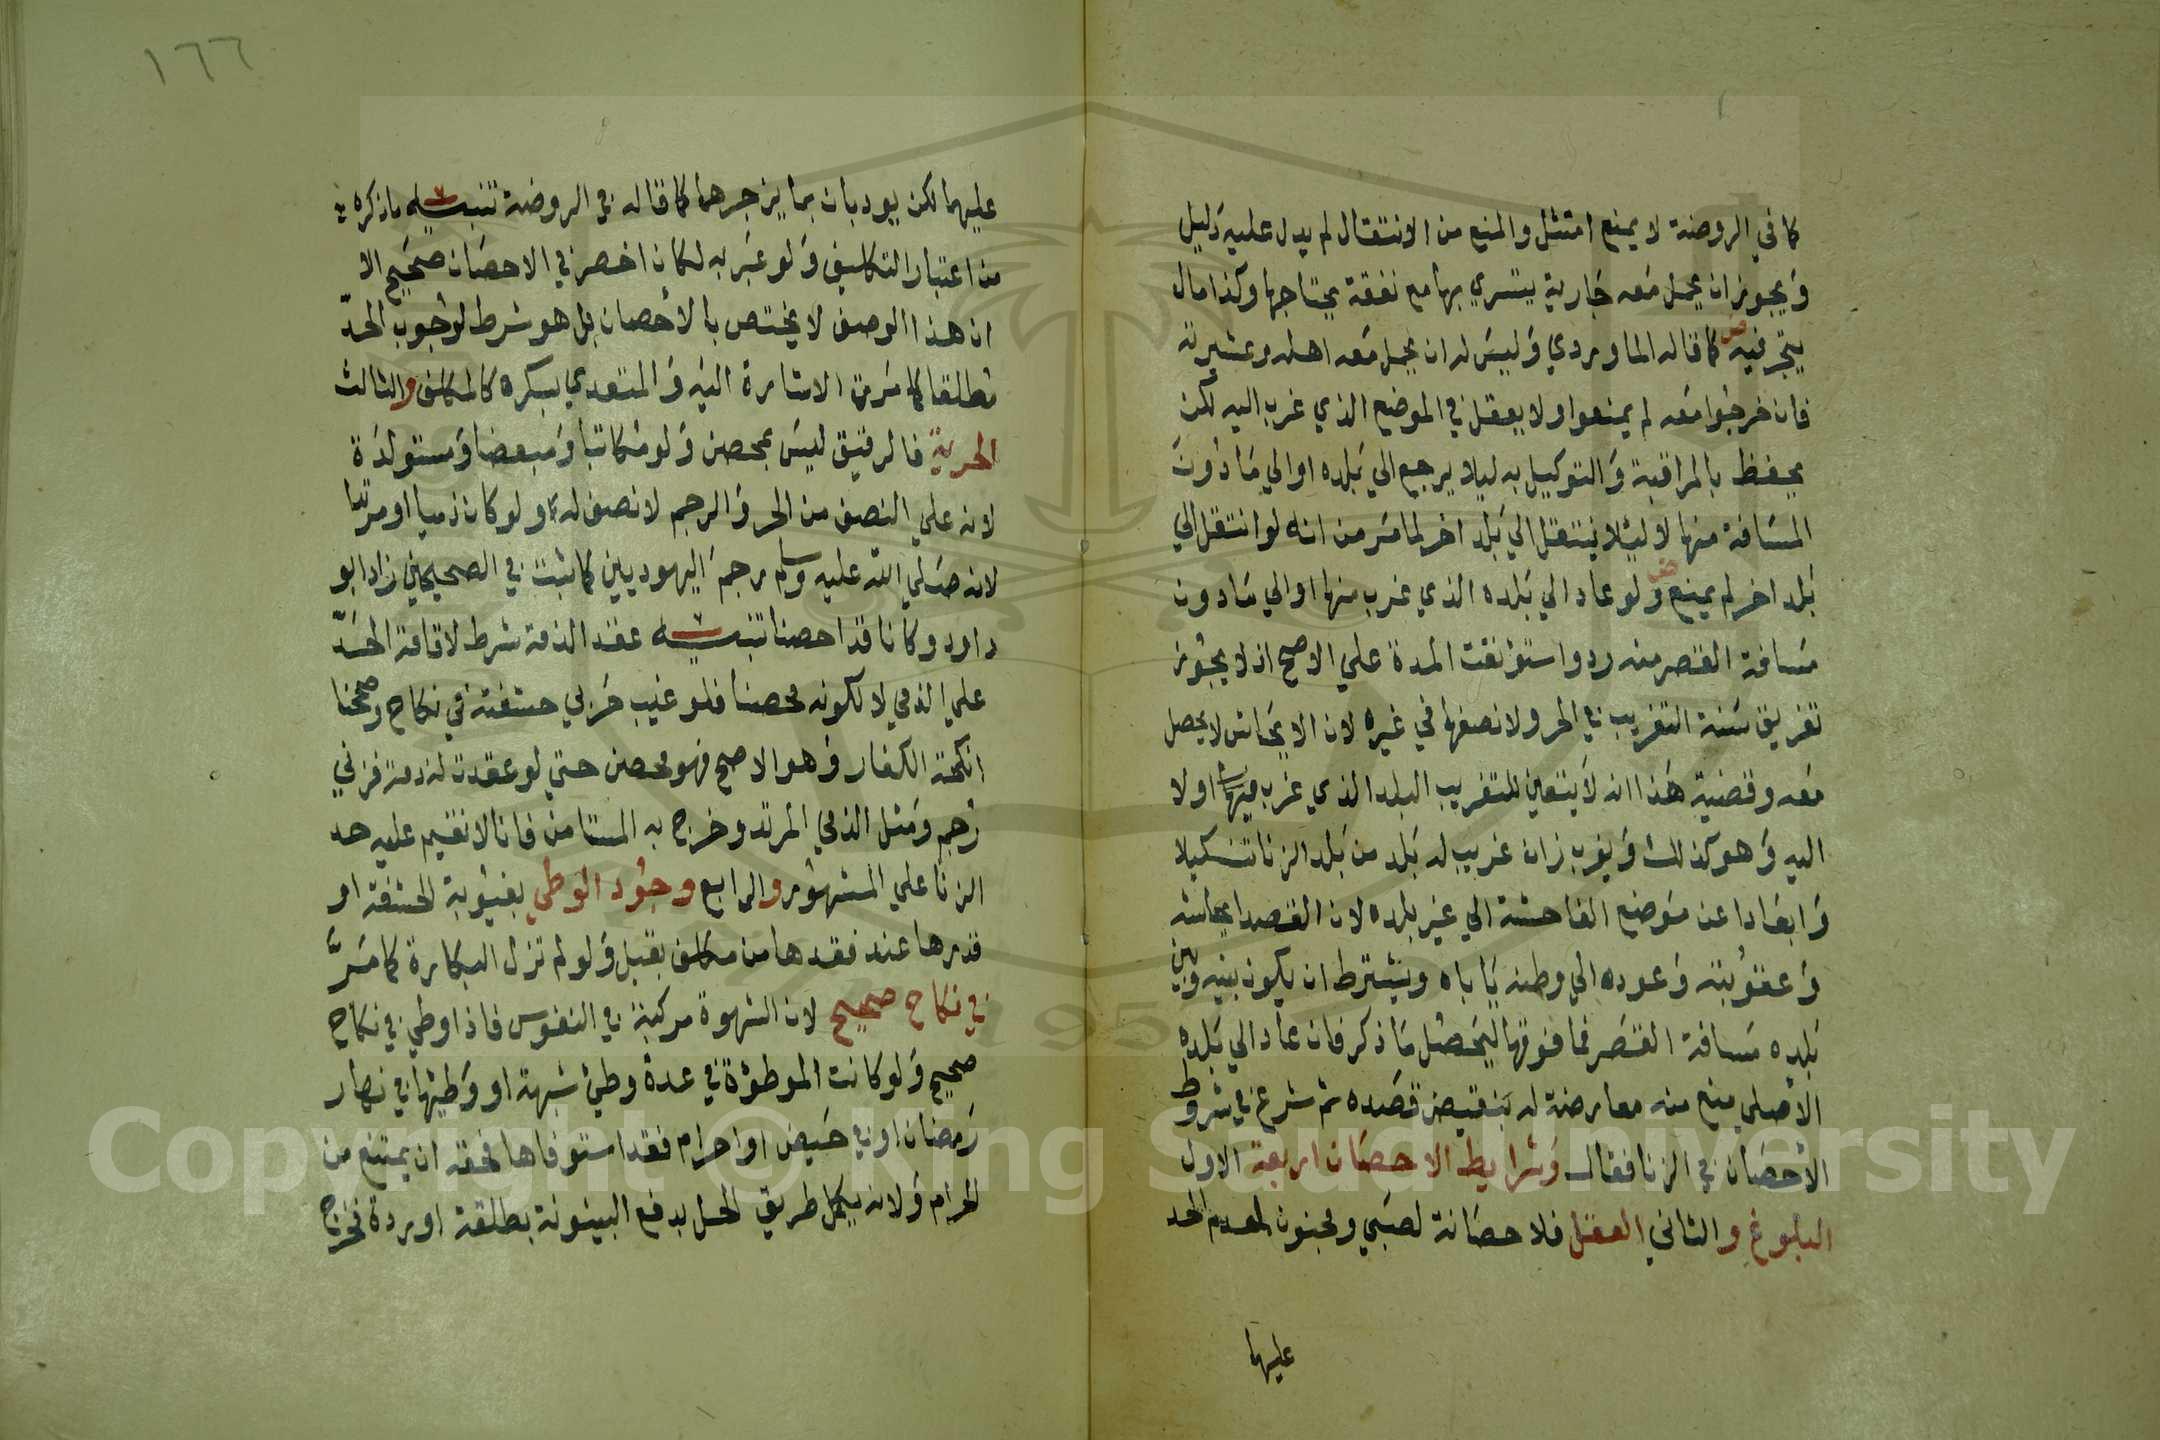 كما في الروضة لا يمنع امتثل والمنع من الانتقال لم يدل عليه دليل
ويجوز ان يحمل معه جارية يتسري بها مع نفقة يحتاجها وكذا مال
يتجر فيه كما قاله الماوردي وليس له ان يحمل معه اهله وعشيرته
فان خرجوا معه لم يمنعوا ولا يعقل في الموضع الذي غرب اليه لكن
يحفظ بالمراقبة والتوكيل به ليلا يرجع الي بلده او الي ما دون
المسافة منها لا ليلا ينتقل الي بلد اخر لما مر من انه لو انتقل الي
بلد اخر لم يمنع ولو عاد الي بلده الذي غرب منها او الي ما دون
مسافة القصر منه رد واستؤنفت المدة علي الاصح اذ لا يجوز
تفريق سنة التغريب في الحر ولا نصفها في غيره لان الايحاش لا يحصل
معه وقضية هذا انه لا يتعين للتغريب البلد الذي غرب اولا
اليه وهو كذلك ويغرب زان غريب له بلد من بلد الزنا تنكيلا
وابعادا عن موضع الفاحشة الي غير بلده لان القصد ايحاشه
وعقوبته وعوده الي وطنه ياباه ويشترط ان يكون بينه وبين
بلده مسافة القصر فما فوقها ليحصل ما ذكر فان عاد الي بلده
الاصلي منع منه معارضة له بنقيض قصده ثم شرع في شروط
الاحصان في الزنا فقال وشرايط الاحصان اربعة الاول
البلوغ والثاني العقل فلا حصانة لصبي ومجنون لعدم الحد
عليهما
١٦٦
عليهما لكن يودبان بما يزجرهما كما قاله في الروضة تنبيه ما ذكره
من اعتبار التكليف ولو عبر به لكان اخصر في الاحصان صحيح الا
ان هذا الوصف لا يختص بالاحصان بل هو شرط لوجوب الحد
مطلقا كما مرت الاشارة اليه والمتعدي بسكره كالمكلف والثالث
الحرية فالرقيق ليس بمحصن ولو مكاتبا ومبعضا ومستولدة
لانه علي النصف من الحر والرجم لا نصف له ولو كان ذميا او مرتدا
لانه صلي الله عليه وسلم رجم اليهوديين كما ثبت في الصحيحين زاد ابو
داود وكانا قد احصنا تنبيه عقد الذمة شرط لاقامة الحد
علي الذمي لا لكونه محصنا فلو غيب حربي حشفته في نكاح وصححنا
انكحة الكفار وهو الاصح فهو محصن حتي لو عقدت له ذمة فزني
رجم ومثل الذمي المرتد وخرج به المستامن فانا لا نقيم عليه حد
الزنا علي المشهور والرابع وجود الوطي بغيوبة الحشفة او
قدرها عند فقدها من مكلف بقبل ولو لم تزل البكارة كما مر
في نكاح صحيح لان الشهوة مركبة في النفوس فاذا وطي في نكاح
صحيح ولو كانت الموطؤة في عدة وطئ شبهة او وطيها في نهار
رمضان او في حيض او احرام فقد استوفاها فحقه ان يمتنع من
الحرام ولانه يكمل طريق الحل بدفع البينونة بطلقة او ردة فخرج
Copyright © King Saud University
1957